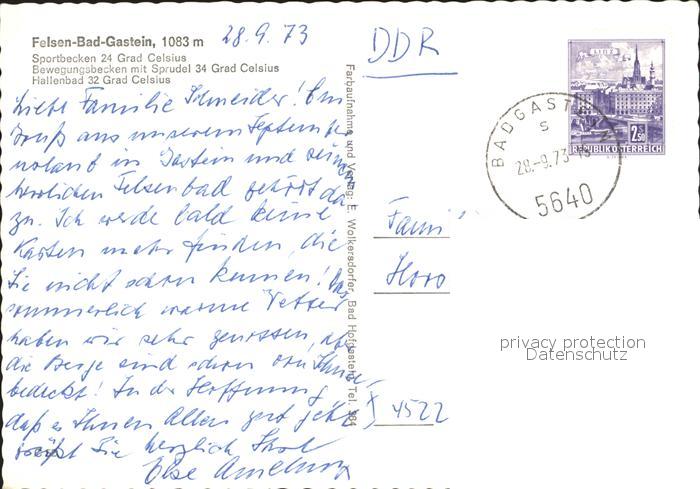 Felsen-Bad-Gastein, 1083 m
28.9.73
Sportbecken 24 Grad Celsius
Bewegungsbecken mit Sprudel 34 Grad Celsius
Hallenbad 32 Grad Celsius
Liebe Familie Schneider! Ein
Gruß aus unserem Septembe
urlaub in Gastein und
herrlichen Felsenbad gehört da
zu. Ich werde bald keine
Karten mehr finden, die
Sie nicht schon kennen! Das
sommerlich warme Wetter
haben wir sehr genossen, ab
die Berge sind schon von Schnee
bedeckt! In der Hoffnung,
daß es Ihnen Allen gut geht
grüßt Sie herzlich Ihre
Else
Farbaufnahme und Verlag: E. Wolkersdorfer, Bad Hofgastein, Tel. 384
DDR
LINZ
2.50
REPUBLIK ÖSTERREICH
BADGASTEIN
S
28.-9.73-18
5640
Fami
privacy protection
Datenschutz
4522